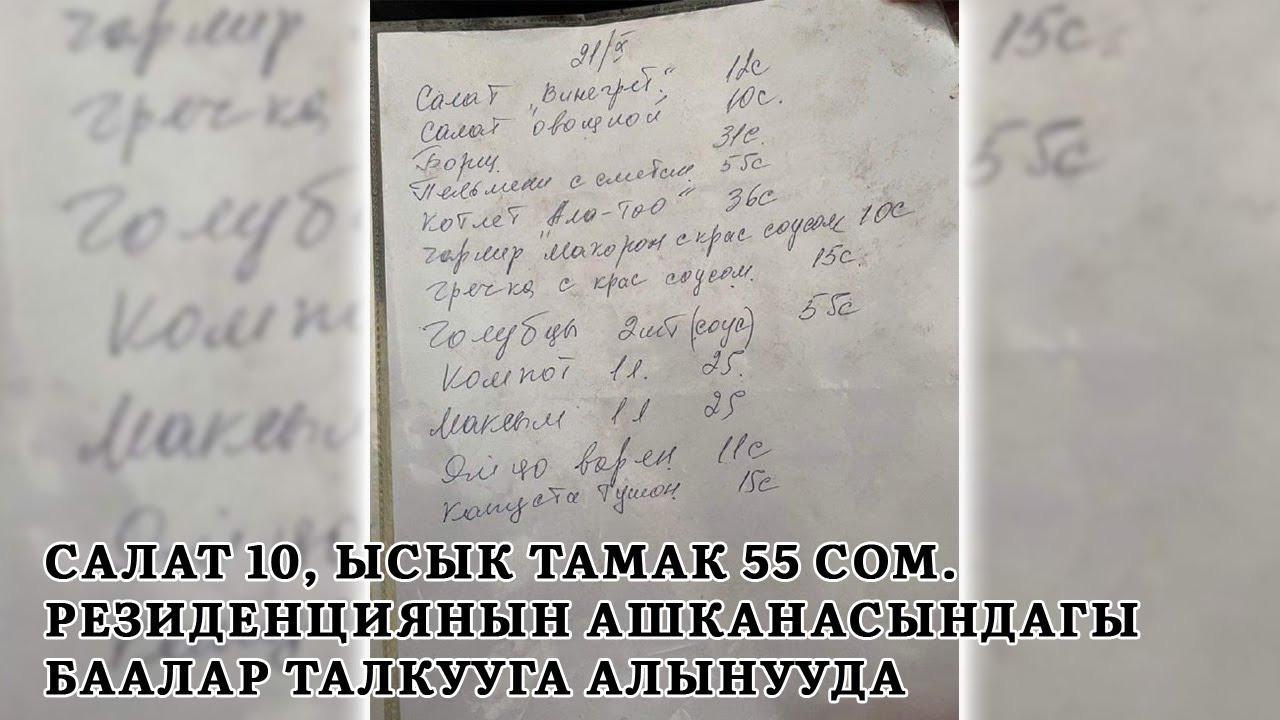 21/X
Салат "Винегрет" 12с
Салат "овощной" 10с.
Борщ 31с.
Пельмени с сметан 55с
Котлет "Ала-Тоо" 36с
Гарнир "Макорон с крас соусом 10с
Гречка с крас соусом. 15с.
Голубцы 2шт (соус) 55с
Компот 1л. 25.
Максым 1л 25
Яйцо варен 11с
Капуста Тушон 15с
САЛАТ 10, ЫСЫК ТАМАК 55 СОМ.
РЕЗИДЕНЦИЯНЫН АШКАНАСЫНДАГЫ
БААЛАР ТАЛКУУГА АЛЫНУУДА